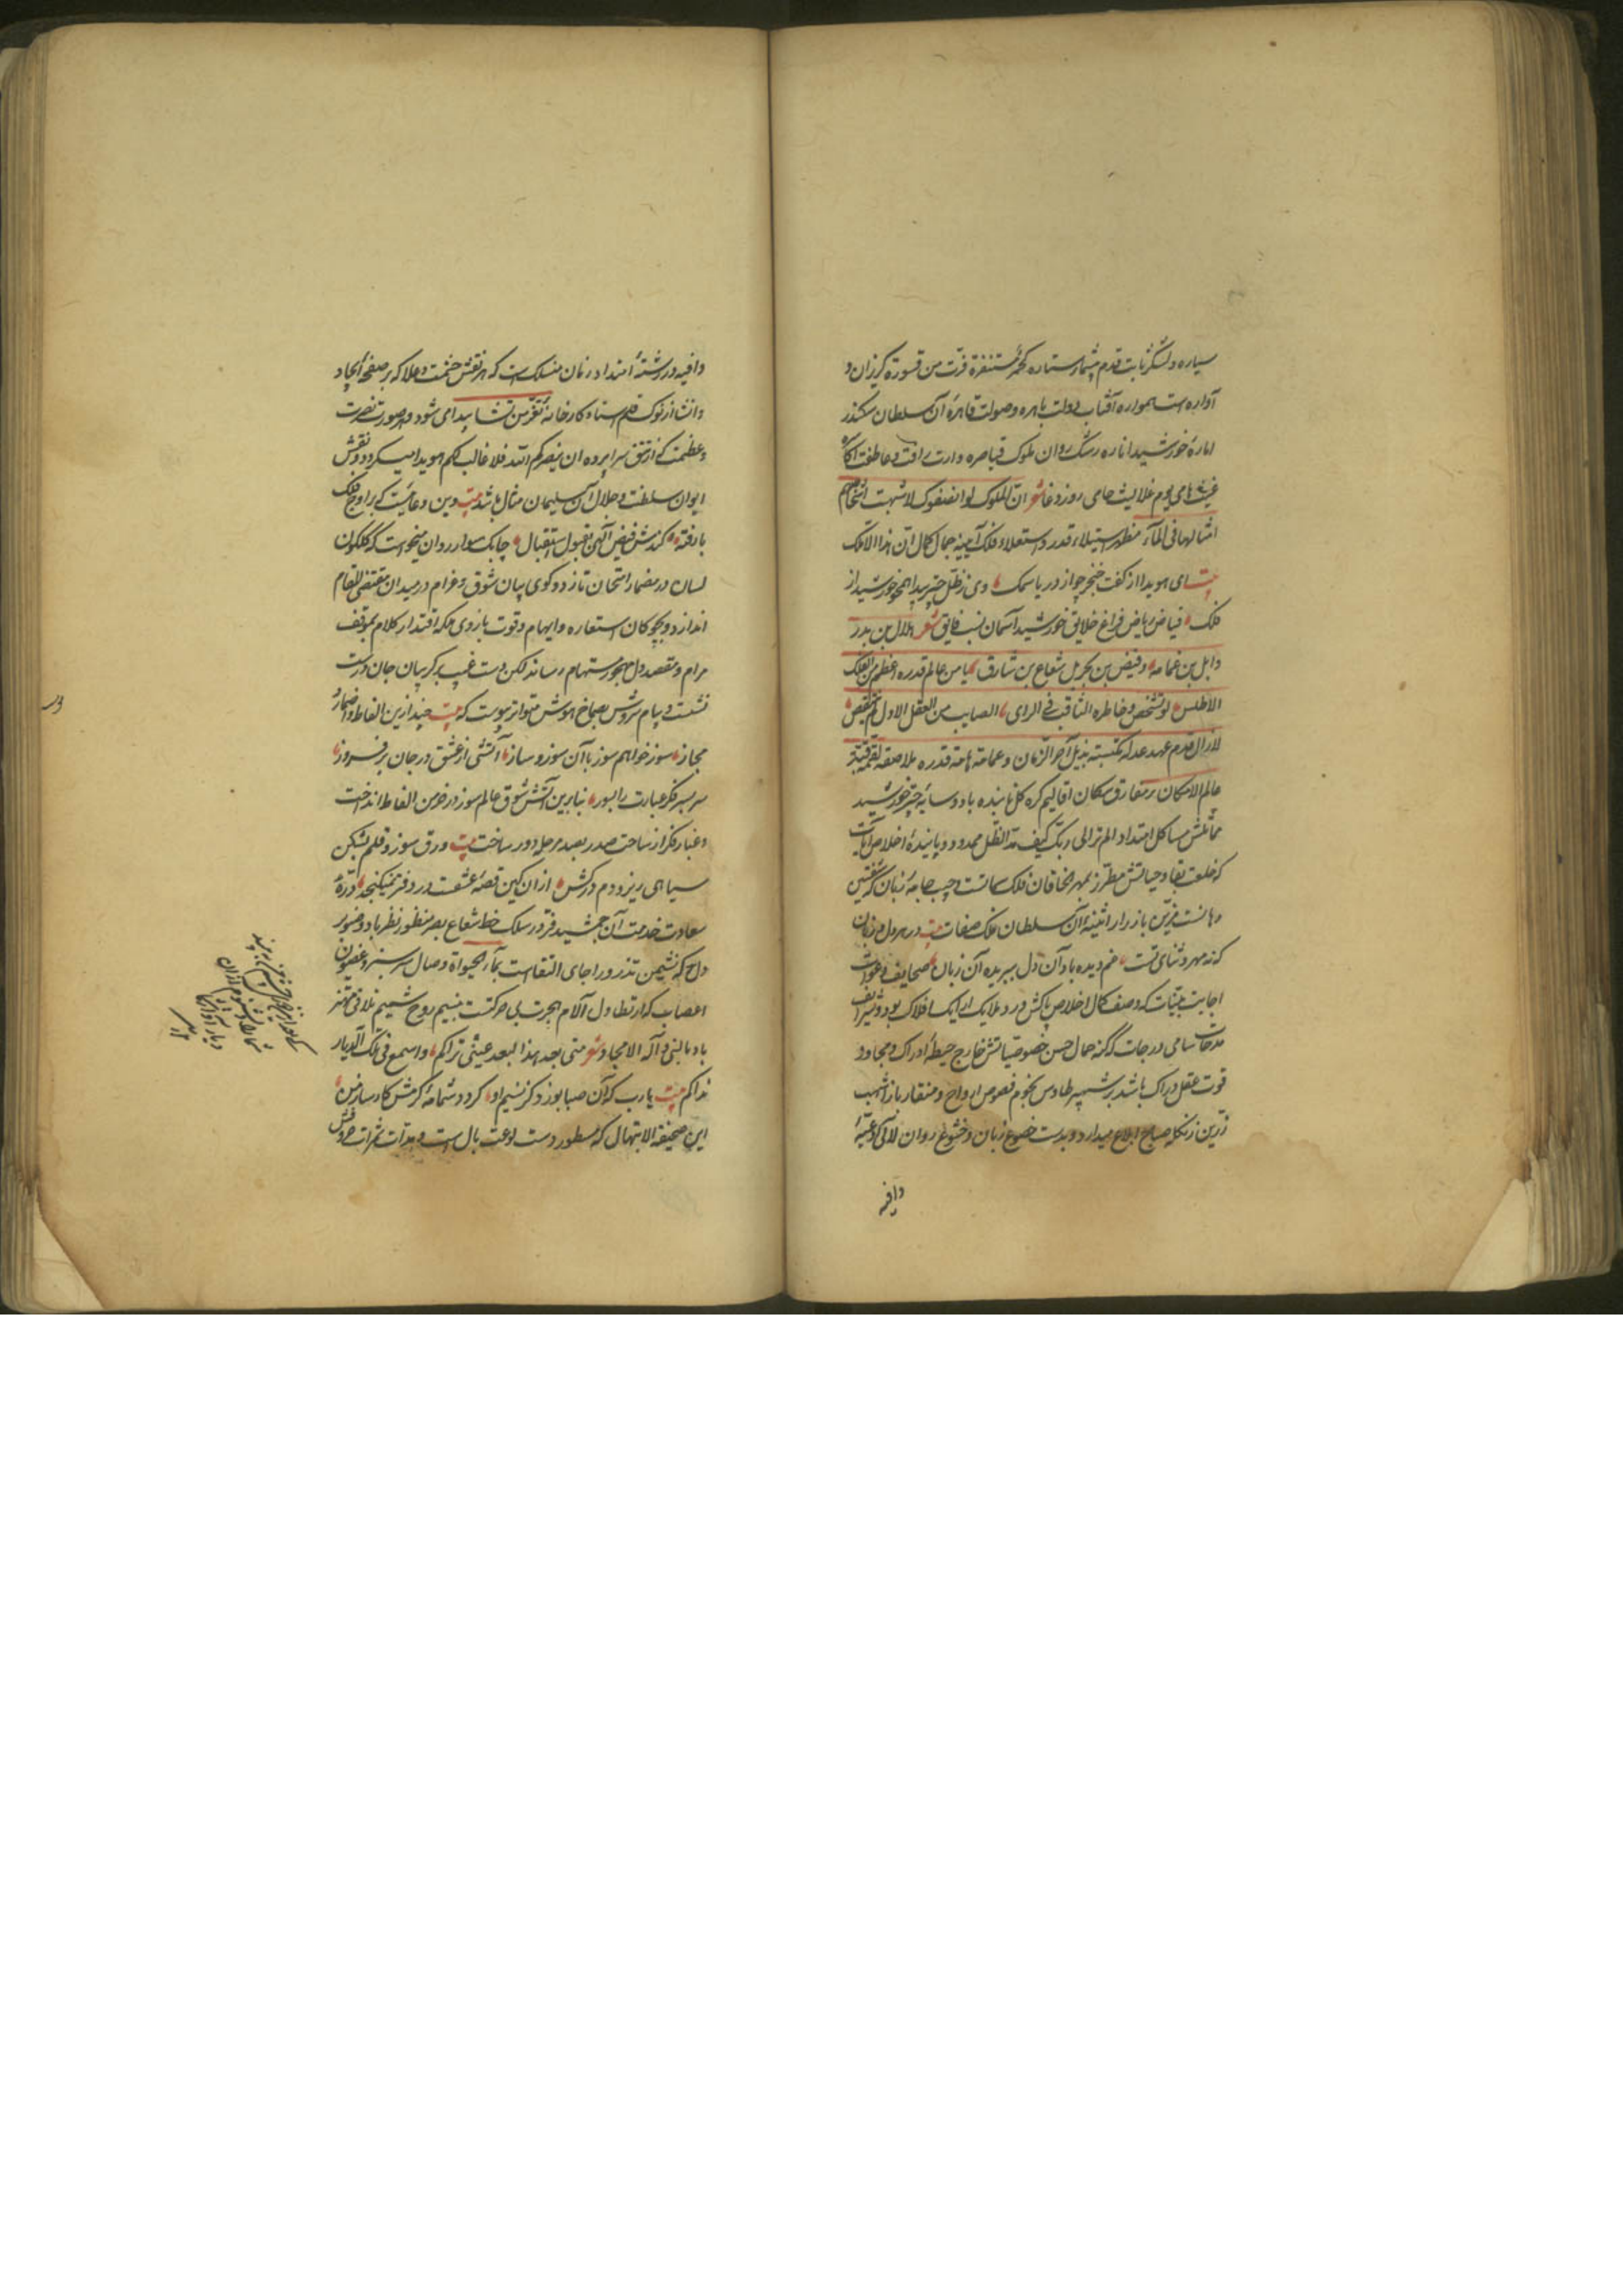 سیاره ولشکر ثابت قدم بشمار ستاره کحمر مستنفرة فرت من قسورة کریزان و
آواره است همواره آفتاب دولت باهره وصولت قاهرهٔ آن سلطان سکندر
امارهٔ خورشید اناره رشک روان ملوک قیاصره وارث رافت و عاطفت
غیث هامی یوم غلا لیث حامی روز وغا شعر ان الملوک لو انصفوک لاشبهت
امثالها فی الماء مظهر استیلاء قدر و استعلاء فلک آیینه جمال کمال ان هذا الا ملک
بیت ای هویدا از کفت خنجر چو از دریا سمک وی ز ظل چتر پیدا همچو خورشید از
فلک فیاض ریاض فراغ خلایق خورشید آسمان نسب فایق شعر هلال بن بدر
وابل بن غمامه وفیض بن بحر بل شعاع بن شارق یا من عالم قدره اعظم من الفلک
الاطلس لو تشخص خاطره الثاقب فی الرای الصایب من العقل الاول لم ینقص
لازال قدم عهد عدله مکتسبة بذیل آخر الزمان وعمامة هامة قدره ملاصقة
عالم الامکان بر مفارق سکان اقالیم کره کل پاینده باد وسایهٔ چتر خورشید
مماثلش مشاکل امتداد الم تر الی ربک کیف مد الظل ممدود و پایندهٔ اخلاص آیات
که خلعت بقاء حیاتش مطرز بمهر خاقان فلک سماتست وجیب جامهٔ زبان
آن سلطان ملک صفات بیت در هر دل و زبان
که نه مهر و ثنای تست غم دیده باد آن دل ببریده آن زبان صحایف دعوات
اجابت بینات که وصف کمال اخلاص پاکش ورد ملایک ارایک افلاک بود و شرایف
مدحات سامی درجات که کنه حال حسن خصوصیاتش خارج حیطهٔ ادراک و مجاوز
قوت عقل دراک باشد بر شهپر طاوس نجوم فصوص ارواح ومنقار باز اشهب
زرین زنکله صباح ابلاغ میدارد و بدست خضوع زبان وخشوع روان لآلی ادعیهٔ
وافیه
وافیه در رشتهٔ امتداد زمان منسلک است که هر نقش حشمت وعلا که بر صفحهٔ ایجاد
وانشا از نوک قلم استاد کارخانهٔ تعز من تشا پیدا می شود وهر صورت نصرت
وعظمت که از تتق سراپرده ان ینصرکم الله فلا غالب لکم هویدا میکردد نقش
ایوان سلطنت وجلال آن سلیمان مثال باشد بیت وین دعاییست که بر اوج فلک
نارفته کندش فیض الهی بقبول استقبال چابک سوار روان میخواست که کلکون
لسان در مضمار امتحان تازد و کوی بیان شوق وغرام در میدان مقتضی المقام
اندازد و بچوکان استعاره وایهام وقوت بازوی ملکه اقتدار کلام بموقف
مرام ومقصد دل مهجور مستهام رساند لکن دست غیب بر کریبان جان درست
نشست و پیام سروش بصماخ هوش متواتر پیوست که بیت چند ازین الفاظ و اضمار
مجاز سوز خواهم سوز با آن سوز و ساز آتشی از عشق در جان بر فروز
سر بسر فکر عبارت را بسوز بنابرین آتش شوق عالم سوز در خرمن الفاظ انداخت
وغبار فکر از ساحت صدر بصد مرحله دور ساخت بیت ورق سوز و قلم بشکن
سیاهی ریز و دم در کش از آن کین قصهٔ عشقست در دفتر نمیکنجد درهٔ
سعادت خدمت آن جمشید فر در سلک خط شعاع بصر منظور نظر باد و صنوبر
دل که نشیمن تذرو رواجای التقاست بماء الحیوة وصال سرسبز وغصون
اعصاب که از تطاول آلام هجرت بی حرکتست بنسیم روح شمیم تلاقی مهتز
باد بالنبی وآله الامجاد شعر متی بعد هذا البعد عینی تراکم واسمع فی تلک الدیار
نداکم بیت یارب که آن صبا بوزد کز نسیم او کردد شمامهٔ کرمش کارساز من
این صحیفة الابتهال که مسطور دست لوعت بال است